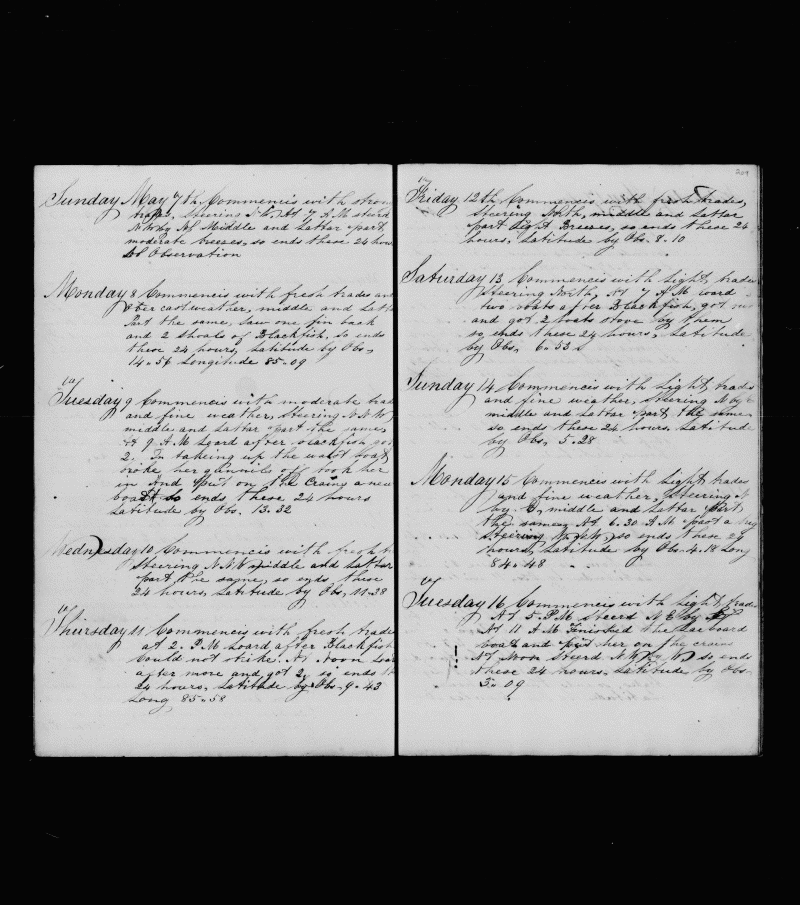 Sunday May 7th Commencis with stron
trades, Steering
N. W. by N. Middle and Lattar part
moderate breezes, so ends these 24 hou
No Observation
Monday 8 Commencis with fresh trades an
Overcast weather, middle and Latt
Part the same, Saw one fin back
and 2 shoals of Blackfish, so ends
these 24 hours, Latitude by Obs,
14..56 Longitude 85..09
Tuesday 9 Commencis with moderate trad
and fine weather, Steering N.N.W,
middle and Lattar part the same,
At 9 A M Loard after blackfish got
2. In takeing up the waist boat
broke her gunnils off took her
in and put on the Crains a new
boat so ends these 24 hours
Latitude by Obs. 13..32
Wednesday 10 Commencis with fresh t
Steering N.N.W middle and Lattar
part the same, so ends these
24 hours, Latitude by Obs, 11..28
Thursday 11 Commencis with fresh trade
at 2. P.M Loard after Blackfish
Could not strike. At noon Loar
after more and got 2, so ends th
24 hours, Latitude by Obs. 9..43
Long 85..58
209
Friday 12th Commencis with fresh trades,
Steering Noth, middle and Lattar
part Light Breezes, so ends these 24
hours, Latitude by Obs. 8..10
Saturday 13 Commencis with Light trades
Steering North, At 7 A M Loard
two boats after Blackfish, got
and got 2 boats stove by them
so ends these 24 hours, Latitude
by Obs, 6..53
Sunday 14 Commencis with Light trades
and fine weather, Steering N by
middle and Lattar part the same
so ends these 24 hours, Latitude
by Obs, 5..28
Monday 15 Commencis with Light trades
and fine weather, Steering N
by E, middle and Lattar part
the same, At 6.30 A M past a brig
Steering so ends these 24
hours, Latitude by Obs. 4..18 Long
84..48
Tuesday 16 Commencis with Light trades
At 5 P.M Steerd N.E. by
At 11 A M Finished the Larboard
boat and put her on the crains
At Noon Steerd N.W. by so ends
these 24 hours, Latitude by Obs
3..09